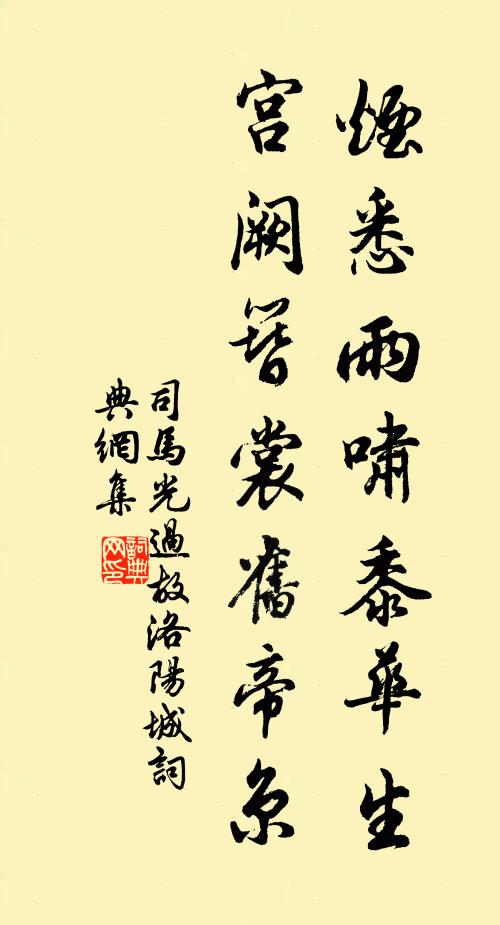 煙悉雨嘯黍華生
宫闕簪裳舊帝京
司馬光過故洛陽城詞
典網集
詞典
网印